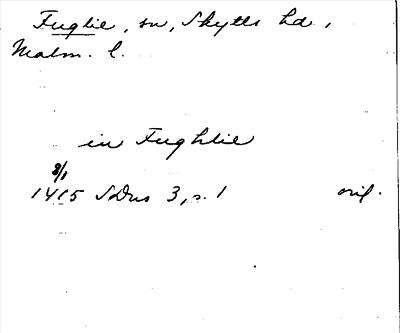 Fuglie, sn, Skytts hd.,
Malm. l.
in Fughlie
8/1
1415 SDns 3, s. 1 orig.